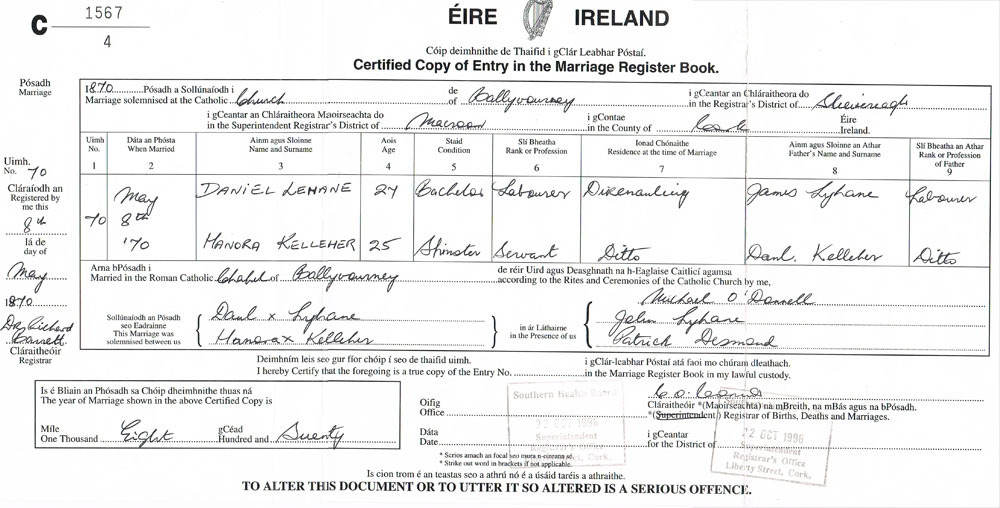 C 1567
4
ÉIRE IRELAND
Cóip deimhnithe de Thaifid i gClár Leabhar Póstaí.
Certified Copy of Entry in the Marriage Register Book.
Pósadh
Marriage
1870 Pósadh a Sollúnaíodh i de i gCeantar an Chláraitheora do
Marriage solemnised at the Catholic Church of Ballyvourney in the Registrar's District of Slievereagh
i gCeantar an Chláraitheora Maoirseachta do i gContae Éire
in the Superintendent Registrar's District of Macroom in the County of Cork Ireland.
Uimh Dáta an Phósta Ainm agus Sloinne Aois Staid Slí Bheatha Ionad Chónaithe Ainm agus Sloinne an Athar Slí Bheatha an Athar
No. When Married Name and Surname Age Condition Rank or Profession Residence at the time of Marriage Father's Name and Surname Rank or Profession of Father
1 2 3 4 5 6 7 8 9
Uimh.
No. 70
Cláraíodh an
Registered by
me this
8th
lá de
day of
May
1870
Dr Richard
Cláraitheóir
Registrar
70 May 8th '70
DANIEL LEHANE 24 Bachelor Labourer Direnauling James Lyhane Labourer
HANORA KELLEHER 25 Spinster Servant Ditto Danl. Kelleher Ditto
Arna bPósadh i de réir Uird agus Deasghnath na h-Eaglaise Caitlicí agamsa
Married in the Roman Catholic Chapel of Ballyvourney according to the Rites and Ceremonies of the Catholic Church by me,
Michael O'Donnell
Sollúnaíodh an Pósadh
seo Eadrainne
This Marriage was
solemnised between us
Danl x Lyhane
Hanora x Kelleher
in ár Láthairne
in the Presence of us
John Lyhane
Patrick Desmond
Deimhním leis seo gur fíor chóip í seo de thaifid uimh. i gClár-leabhar Póstaí atá faoi mo chúram dleathach.
I hereby Certify that the foregoing is a true copy of the Entry No. in the Marriage Register Book in my lawful custody.
Is é Bliain an Phósadh sa Chóip dheimhnithe thuas ná
The year of Marriage shown in the above Certified Copy is
Míle gCéad
One Thousand Eight Hundred and Seventy
Oifig
Office
Cláraitheóir *(Maoirseachta) na mBreith, na mBás agus na bPósadh.
*(Superintendent) Registrar of Births, Deaths and Marriages.
Dáta i gCeantar
Date for the District of
Southern Health Board
22 OCT 1996
Superintendent
Registrar's
Cork.
22 OCT 1996
Superintendent
Registrar's Office
Liberty Street, Cork.
* Scrios amach an focal seo mura
* Strike out word in brackets if not applicable.
Is cion trom é an teastas seo a athrú nó é a úsáid taréis a athraithe.
TO ALTER THIS DOCUMENT OR TO UTTER IT SO ALTERED IS A SERIOUS OFFENCE.